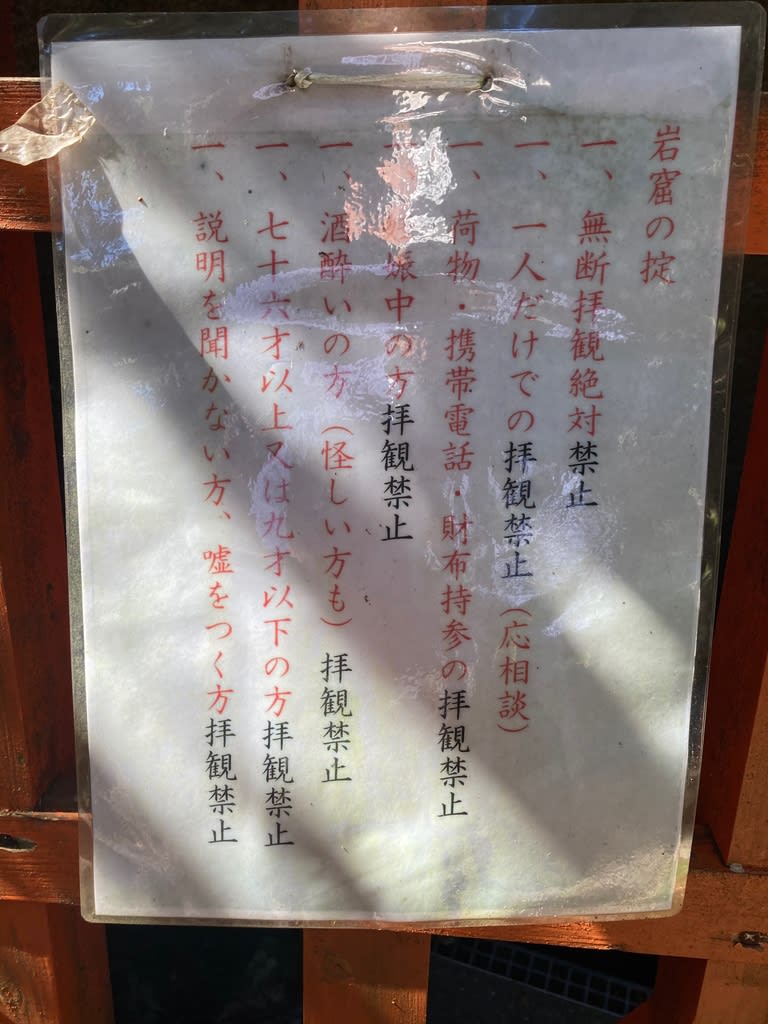 岩窟の掟
一、無断拝観絶対禁止
一、一人だけでの拝観禁止（応相談）
一、荷物・携帯電話・財布持参の拝観禁止
娠中の方拝観禁止
一、酒酔いの方（怪しい方も）拝観禁止
一、七十六才以上又は九才以下の方拝観禁止
一、説明を聞かない方、嘘をつく方拝観禁止